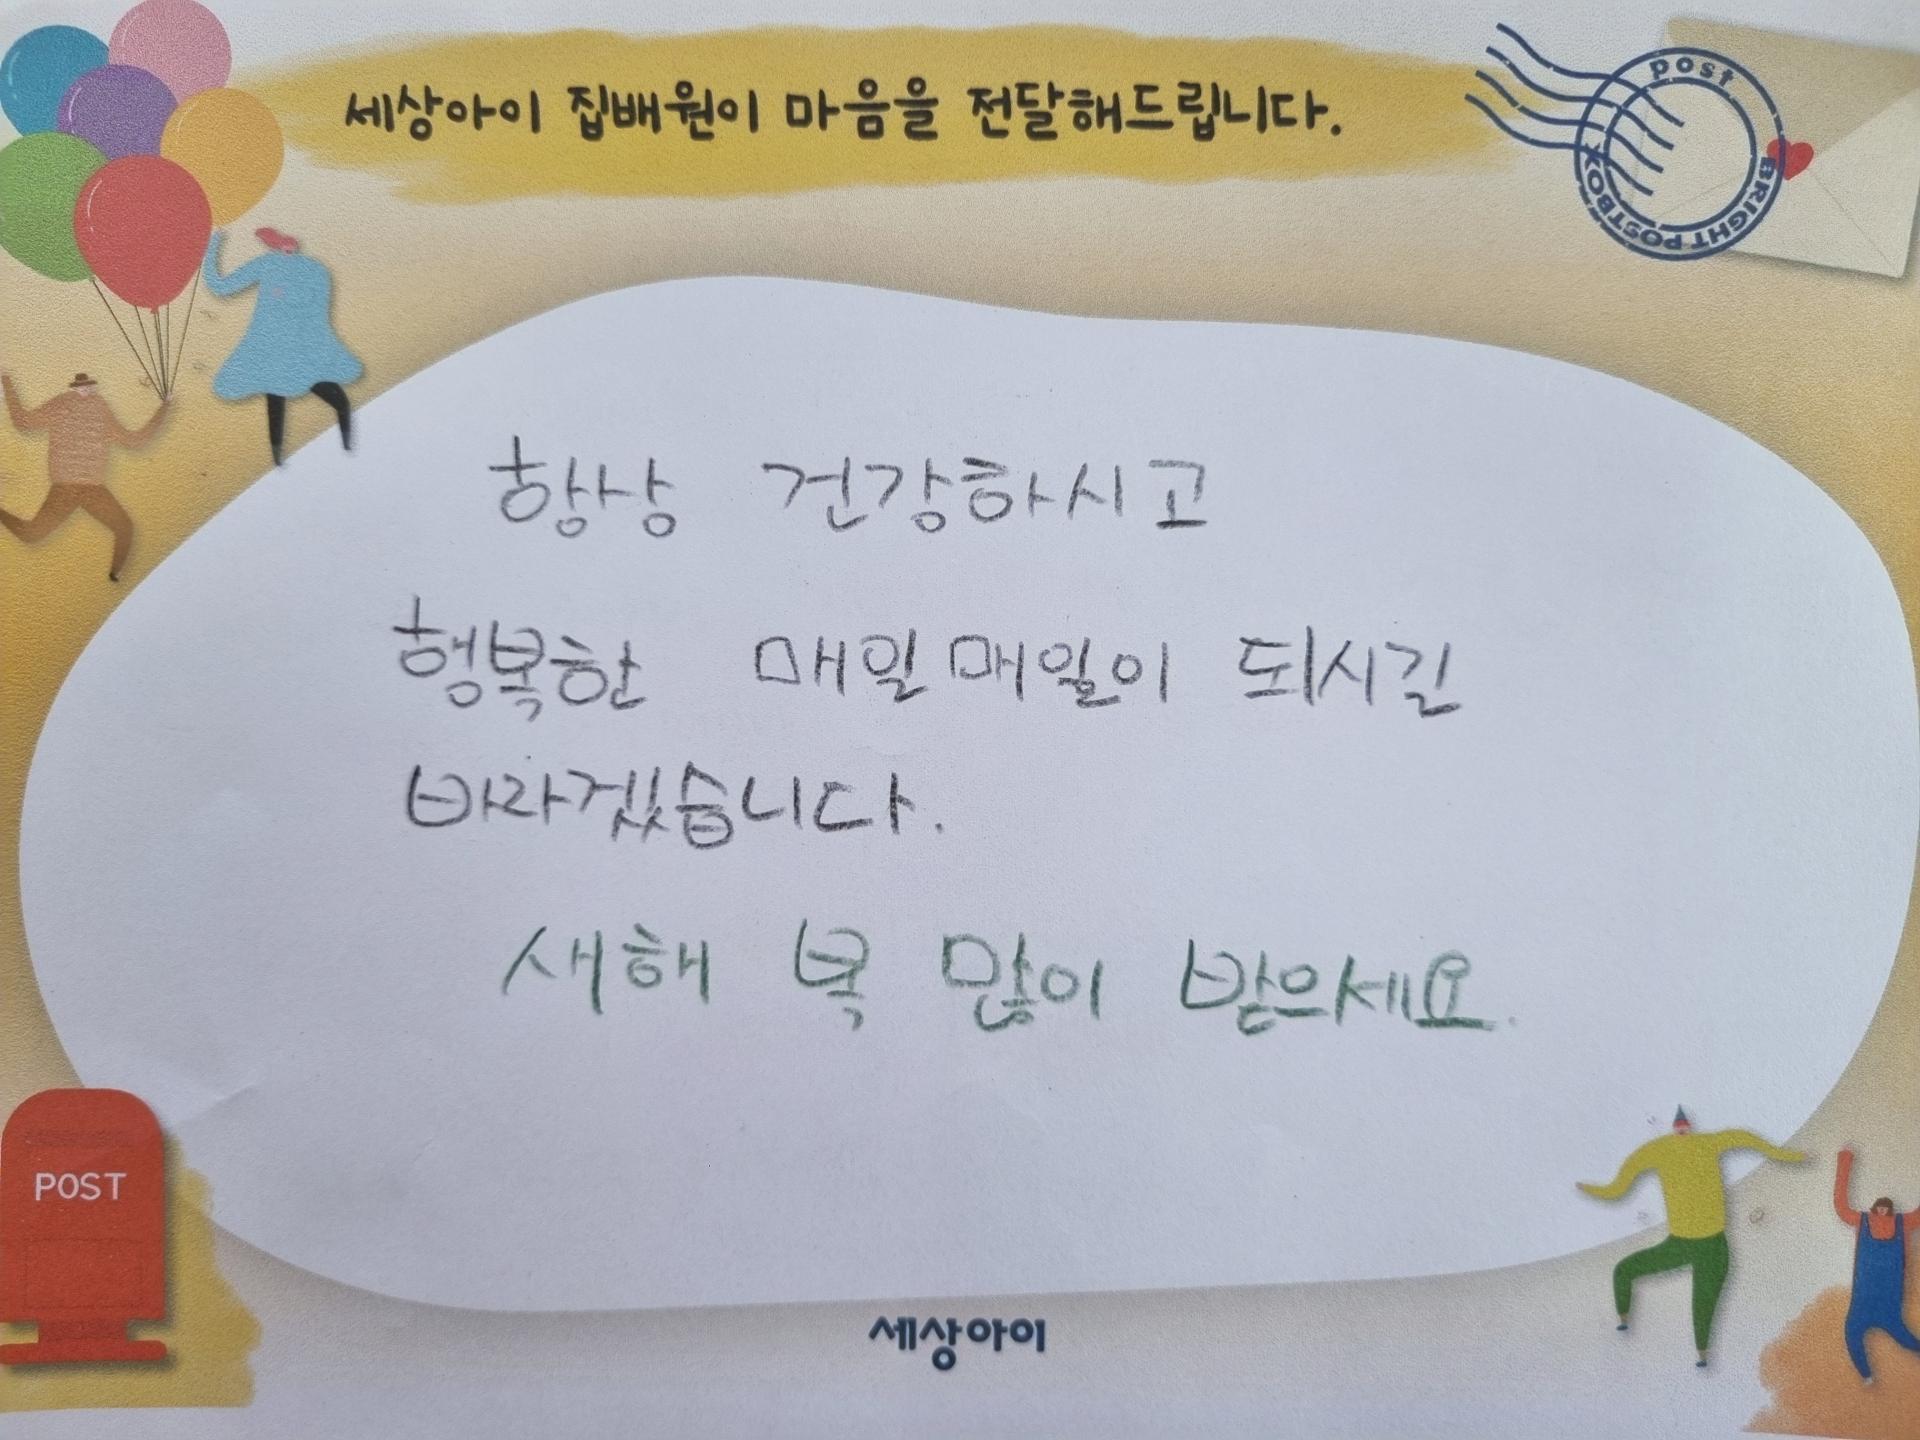 세상아이 집배원이 마음을 전달해드립니다.
post
BRIGHT POSTBOX
항상 건강하시고
행복한 매일매일이 되시길
바라겠습니다.
새해 복 많이 받으세요.
POST
세상아이